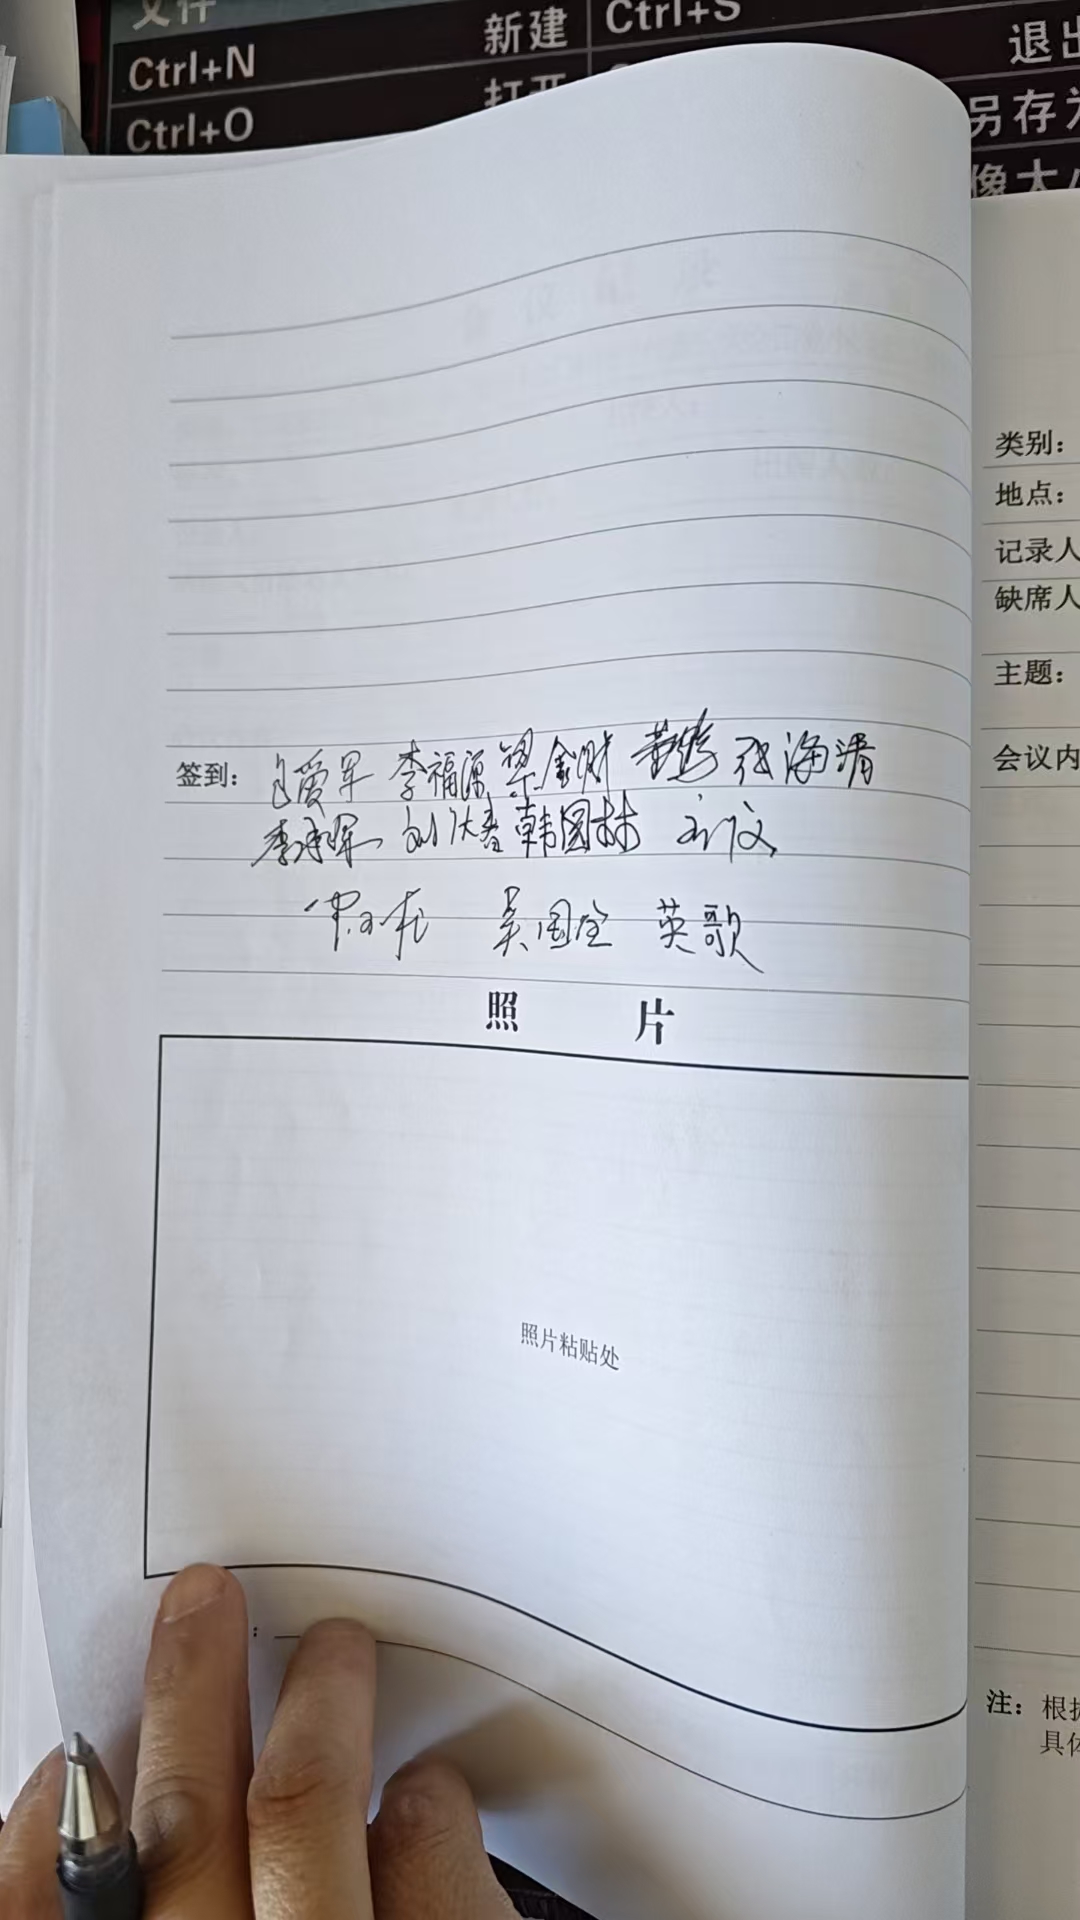 文件
Ctrl+N 新建 Ctrl+S
Ctrl+O 打开 退出
另存为
像大小
类别：
地点：
记录人
缺席人
主题：
会议内
签到： 爱军 李福源 梁金财 黄 张海清
李 刘 韩国林
吴国全 英歌
照 片
照片粘贴处
：
注：根据
具体